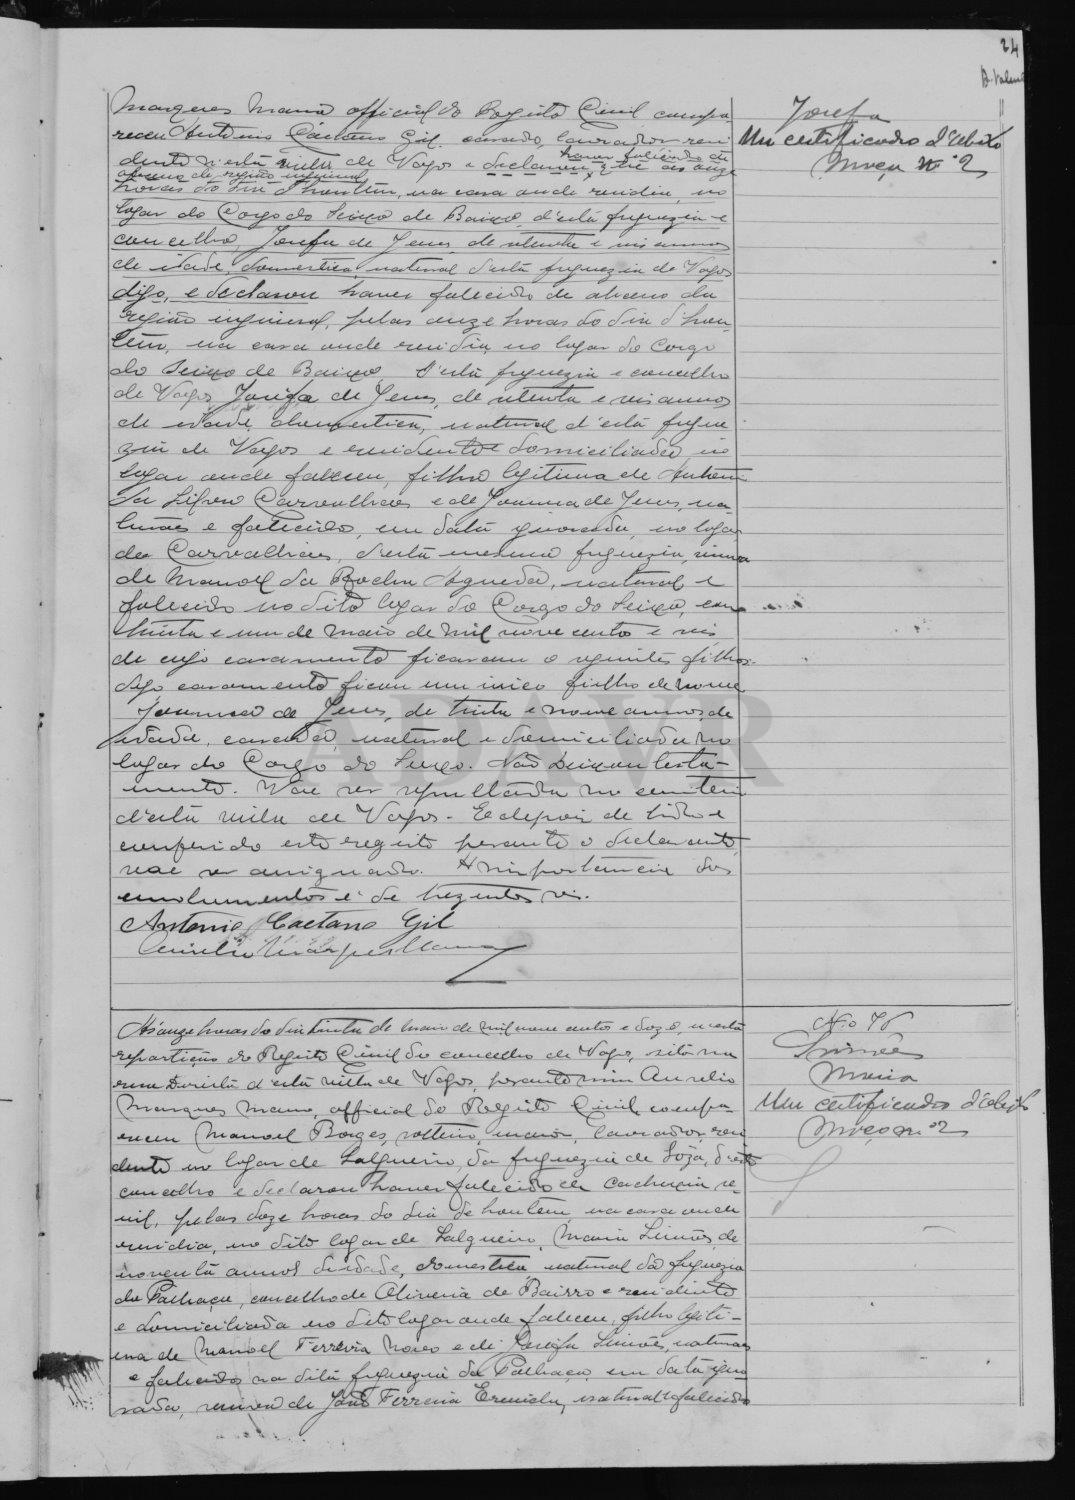 24
Marques Mano official do Registo Civil compa
receu Antonio Caetano Gil, casado, lavrador resi
dente n'esta villa de Vagos e declarou que ás onze
haver fallecido de
abcesso da região inguinal
horas do dia d'hontem, na casa onde residia, no
logar do Corgo do Seixo de Baixo, d'esta freguezia e
concelho, Josefa de Jesus, de oitenta e seis annos
de idade, domestica, natural d'esta freguezia de Vagos
digo, e declarou haver falecido de abcesso da
região inguinal, pelas onze horas do dia d'hon-
tem, na casa onde residia, no logar do Corgo
do Seixo de Baixo, d'esta freguezia e concelho
de Vagos Josefa de Jesus, de oitenta e seis annos
de idade, domestica, natural d'esta fregue
zia de Vagos e residente e domiciliada no
logar onde faleceu, filha legitima de Antonio
da Silva Carvalhaes e de Joanna de Jesus, na-
turaes e falecidos, em data ignorada, no logar
de Carvalhaes, d'esta mesma freguezia, viuva
de Manoel da Rocha Agueda, natural e
falecido no dito logar do Corgo do Seixo, em
trinta e um de Maio de mil nove centos e seis,
de cujo casamento ficaram o seguintes filhos.
digo casamento ficou um unico filho de nome
Joanna de Jesus, de trinta e nove annos, de
idade, casada, natural e domiciliada no
logar do Corgo do Seixo. Não deixou testa-
mento. Vae ser sepultada no cemiterio
d'esta villa de Vagos. E depois de lido e
conferido este registo perante o declarante,
vae ser assignado. A importancia dos
emolumentos é de trezentos reis.
Antonio Caetano Gil
Aurelio Marques Mano
Josefa
Um certificado d'obito
Março nº 2
As onze horas do dia trinta de Maio de mil nove centos e doze, n'esta
repartição do Registo Civil do concelho de Vagos, sita na
rua Direita d'esta villa de Vagos, perante mim Aurelio
Marques Mano, official do Registo Civil, compa-
receu Manoel Borges, solteiro, maior, lavrador, resi
dente no logar de Salgueiro, da freguezia de Sôza, d'este
concelho e declarou haver falecido de cachexia se-
nil, pelas doze horas do dia de hontem, na casa onde
residia, no dito logar de Salgueiro, Maria Simões, de
noventa annos de idade, domestica, natural da freguezia
da Palhaça, concelho de Oliveira do Bairro e residente
e domiciliada no dito logar onde faleceu, filha legiti-
ma de Manoel Ferreira Novo e de Josefa Simões, naturaes
e falecidos na dita freguezia da Palhaça, em data igno
rada, viuva de João Ferreira natural e falecido
Nº
Simões
Maria
Um certificado d'obito
Março nº 2
ADAVR